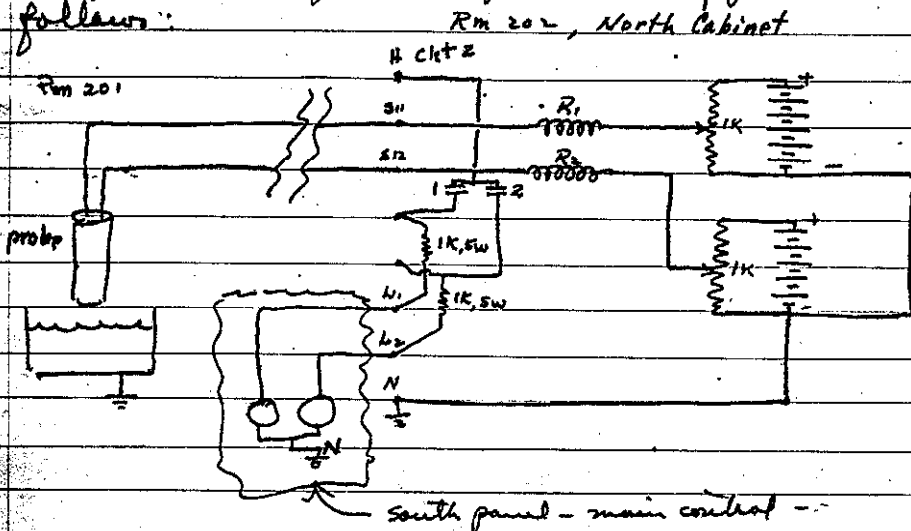 follows:
Rm 202, North Cabinet
H Ckt 2
Rm 201
S11
R1
1K
+
S12
R2
-
1
2
probe
1K, 5W
+
1K
L1
1K, 5W
-
L2
N
N
south panel - main control --